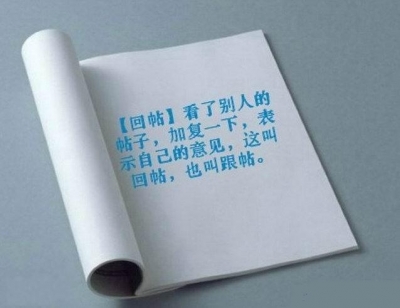 【回帖】看了别人的
帖子，加复一下，表
示自己的意见，这叫
回帖，也叫跟帖。